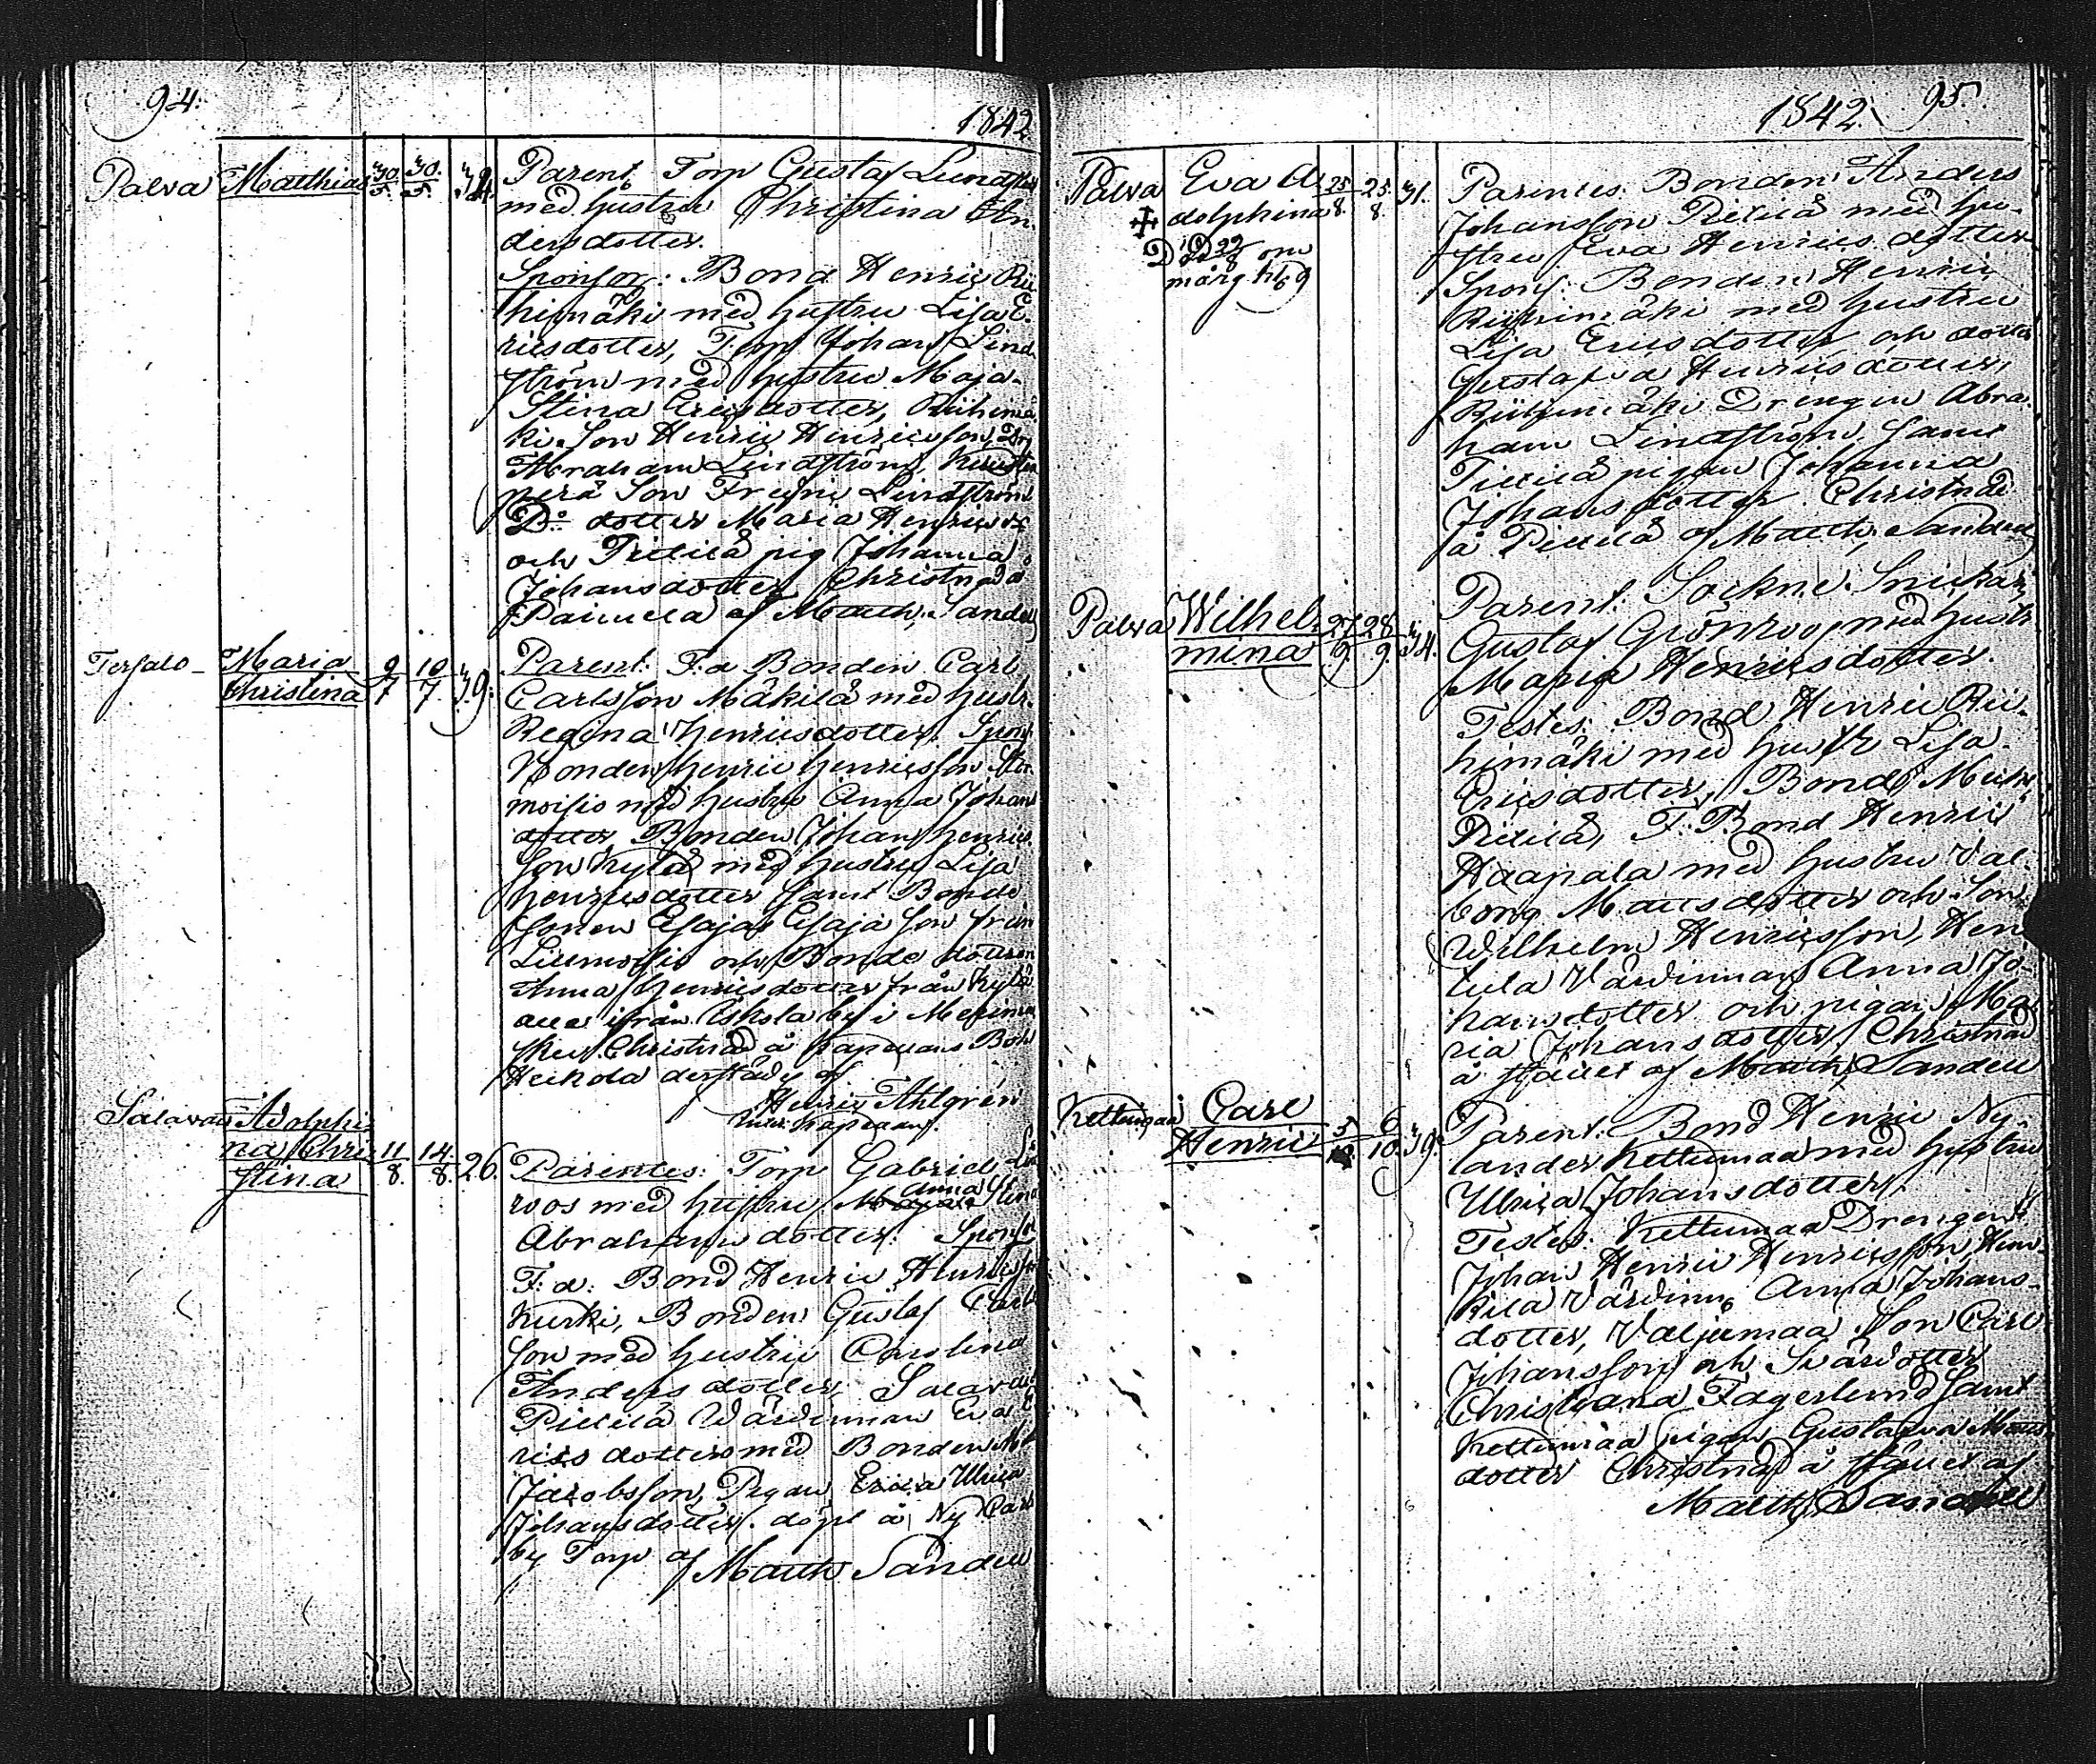 94.
1842
Palva Matthias 30/5. 30/5. 34. Parent. Torp Gustaf Lindst
med hustru Christina An-
dersdotter.
Sponsor: Bond Henric Rii
himäki med hustru Lisa E-
ricsdotter, Torp Johan Lind-
ström med hustru Maja-
Stina Ericsdotter, Riihimä
ki Son Henric Henricsson, Drg
Abraham Lindström,
perä Son Lindström
Do dotter Maria Henrics
och Pietilä pig Johanna
Johansdotter Christnad å
af Matth. Sandell
Terfalo - Maria
Christina 9/7 10/7. 39. Parent: F.d Bonden Carl
Carlsson Mäkilä med hustr.
Regina Henricsdotter. Spons
Bonden Henric Henricsson
moisio med hustru Anna Johans
dotter Bonden Johan Henrics
son Kylä med hustru Lisa
Henricsdotter samt Bonde
sonen Esajas Esaja son från
och Bonde dottren
Anna Henricsdotter från Kylä
alla ifrån by i
Christnad å Kapellans Bol
Heikola derstädes af
Henric Ahlgren
Salavan Adolphi-
na Chri-
stina 11/8. 14/8. 26. Parentes: Torp Gabriel Lin
roos med hustru Anna Stina
Abrahamsdotter. Sponsor
F.d. Bond Henric Henricsson
Kurki, Bonden Gustaf Carls
son med hustru Carolina
Andersdotter, Salavan
Pietilä Wärdinnan Eva
rics dotter med Bonden
Jacobsson, Pigan Erica Ulrica
Johansdotter. döpt å Ny
by Torp af Matth Sandell
1842. 95.
Palva Eva A 25/8. 25/8. 31. Parentes. Bonden Anders
dolphina Johansson Pietilä med hu
D. D 29/8 om stru Eva Henrics dotter
märg. kl. 9 Spons: Bonden Henric
Riihimäki med hustru
Lisa Ericsdotter och dotter
Gustafva Henricsdotter,
Riihimäki Drängen Abra-
ham Lindström, samt
Pietilä pigan Johanna
Johansdotter. Christnad
å Pietilä af Matth. Sandell
Palva Wilhel-
mina 27/9. 28/9. 34. Parent: Sockne Snickar
Gustaf Grönroos med hustr
Maria Henricsdotter.
Testes: Bond Henric Rii-
himäki med hustr Lisa
Ericsdotter, Bond
Pietilä, F. Bond Henric
Haapala med hustru Val-
borg Matsdotter och Son
Wilhelm Henricsson, Hen
tula Värdinnan Anna Jo-
hansdotter och pigan Ma
ria Johansdotter Christnad
å stället af Matth. Sandell
Kettumaa Carl
Henric 5/10 6/10. 39. Parent. Bond Henric Ny-
lander Kettumaa med hustru
Ulrica Johansdotter.
Testes. Kettumaa Drengen
Johan Henric Henricsson,
Värdinn. Anna Johans-
dotter, Valjumaa Son Carl
Johansson och Svärdotter
Christiana Fagerlund samt
Kettumaa pigan Gustafva Mats
dotter Christnad å stället af
Matth. Sandell